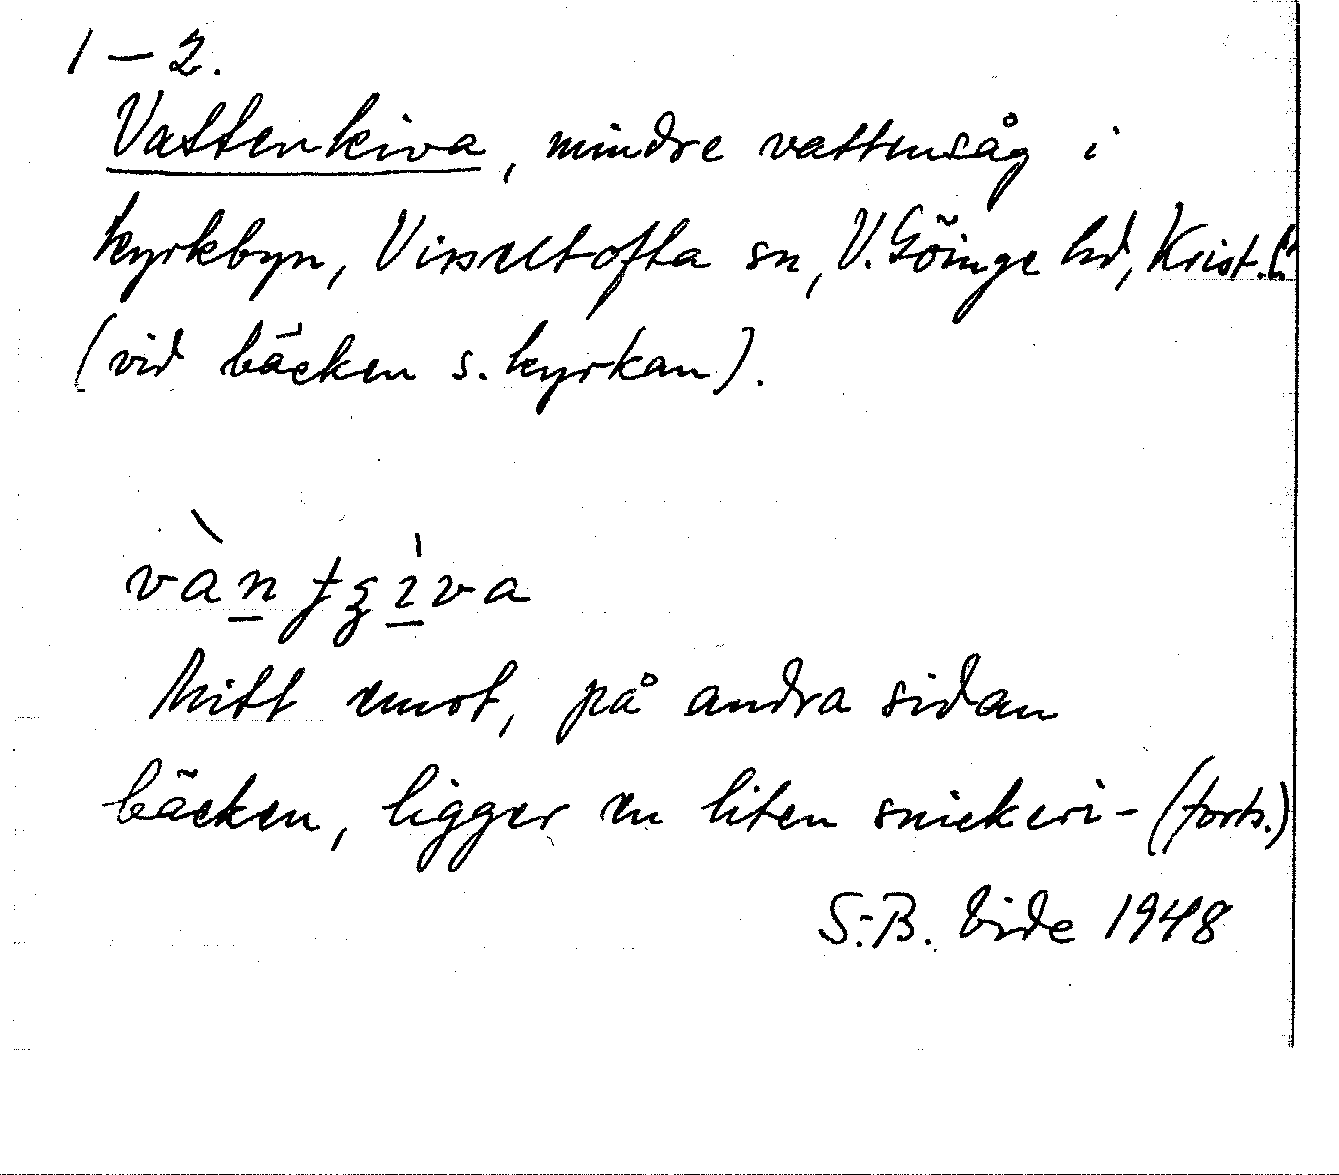 1–2.
Vattenkiva, mindre vattensåg i
kyrkbyn, Visseltofta sn, V. Göinge hd, Krist. l.
(vid bäcken s. kyrkan).
Mitt emot, på andra sidan
bäcken, ligger en liten snickeri- (forts.)
S.-B. Vide 1948